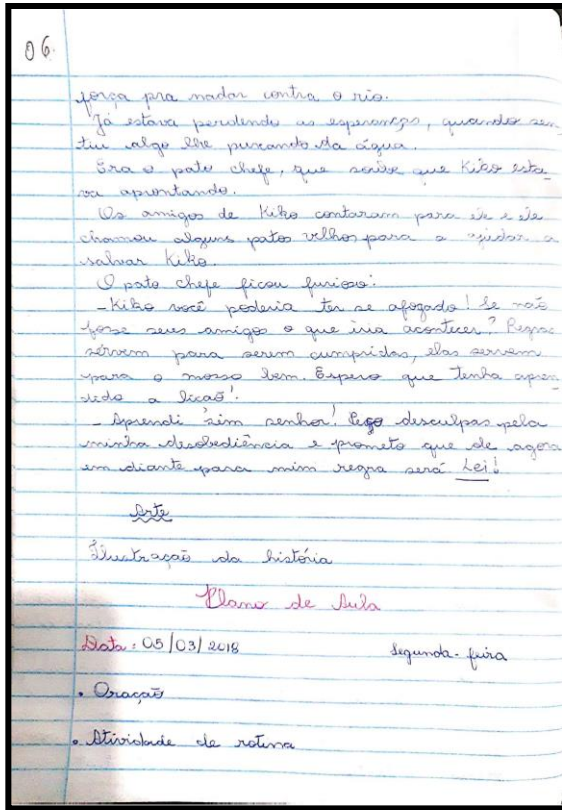 06.
força pra nadar contra o rio.
Já estava perdendo as esperanças, quando sen-
tiu algo lhe puxando da água.
Era o pato chefe, que soube que Kiko esta-
va aprontando.
Os amigos de Kiko contaram para ele e ele
chamou alguns patos velhos para o ajudar a
salvar Kiko.
O pato chefe ficou furioso:
- Kiko você poderia ter se afogado! Se não
fosse seus amigos o que iria acontecer? Regras
servem para serem cumpridas, elas servem
para o nosso bem. Espero que tenha apren-
dido a lição!
- Aprendi sim senhor! Peço desculpas pela
minha desobediência e prometo que de agora
em diante para mim regra será Lei!
Arte
Ilustração da história
Plano de Aula
Data: 05/03/2018 Segunda-feira
• Oração
• Atividade de rotina